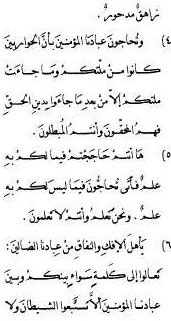 زاهق مدحور .
(٤) وتُحاجون عبادنا المؤمنين بأن الحواريين
كانوا من ملتكم وما جاءت
ملتكم إلا من بعد ما جاءوا بدين الحق
فهم المحقون وأنتم المبطلون .
(٥) ها أنتم حاججتم فيما لكم به
علم فأنى تحاجون فيما ليس لكم به
علم . ونحن نعلم وأنتم لا تعلمون .
(٦) يأهل الإفك والنفاق من عبادنا الضالين :
تعالوا إلى كلمة سواء بيننكم وبين
عبادنا المؤمنين ألا تتبعوا الشيطان ولا